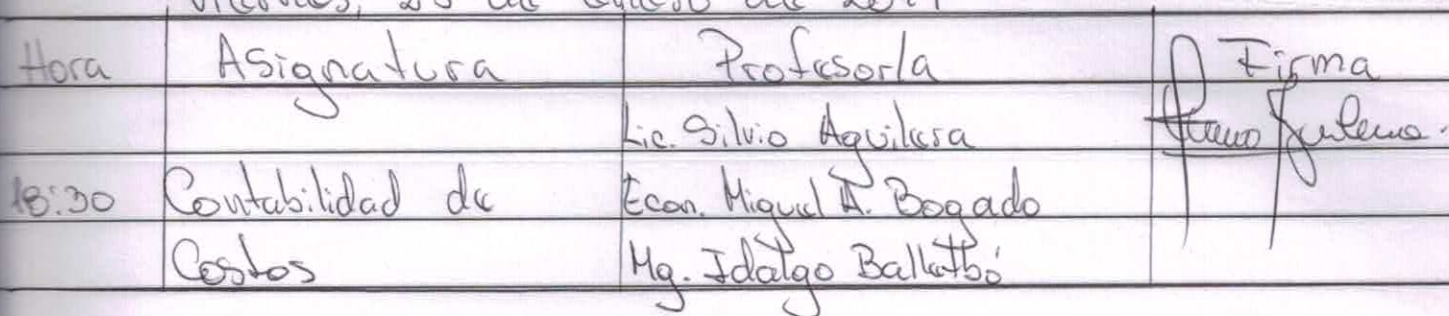 Hora Asignatura Profesor/a Firma
Lic. Silvio Aguilera
18:30 Contabilidad de Econ. Miguel A. Bogado
Costos Mg. Idalgo Ballatbó